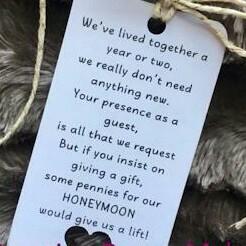 We've lived together a
year or two,
we really don't need
anything new.
Your presence as a
guest,
is all that we request
But if you insist on
giving a gift,
some pennies for our
HONEYMOON
would give us a lift!